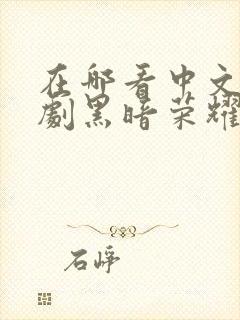 在哪看中文
劇黑暗荣耀
石崢